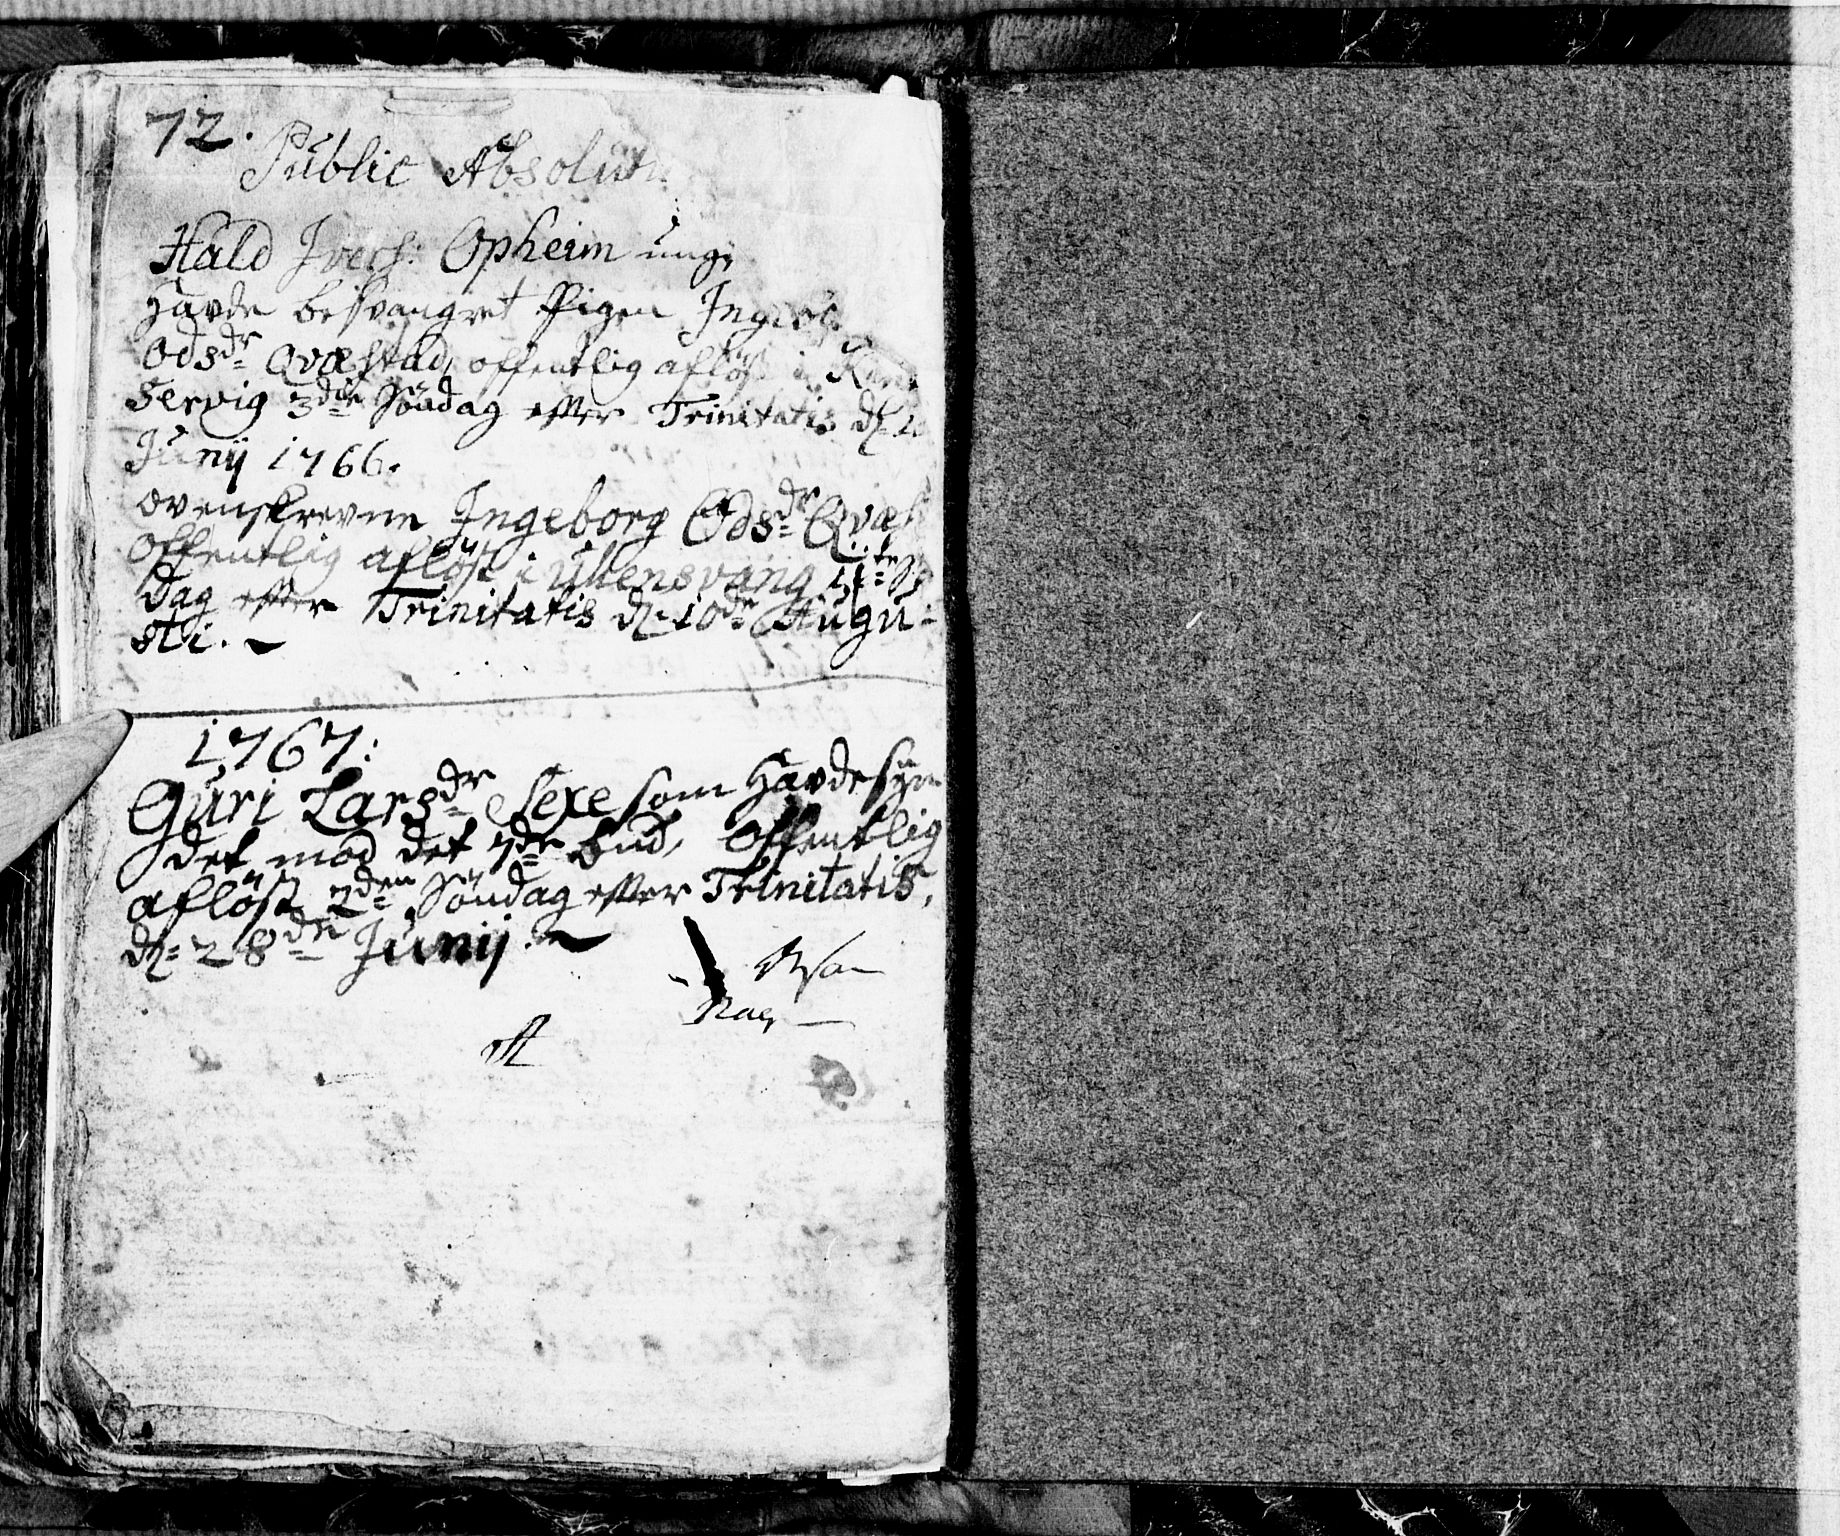 72.
Public Absolut
Hald Iversß: Opheim ung
havde besvangret Pigen Ingeb
Odsdr Qvæstad, offentlig afløst i Kin
servig 3die Søndag efter Trinitatis d:
Junij 1766.
ovenskrevne Ingeborg Odsdr Qvæst
offentlig afløst i Ullensvang 11te Søn
dag efter Trinitatis d: 10de Augu-
sti. ~
1767:
Guri Larsdr Sexe som havde syn
det mod det 7de bud, offentlig
afløst 2den Søndag efter Trinitatis,
d: 28de Junij. ~